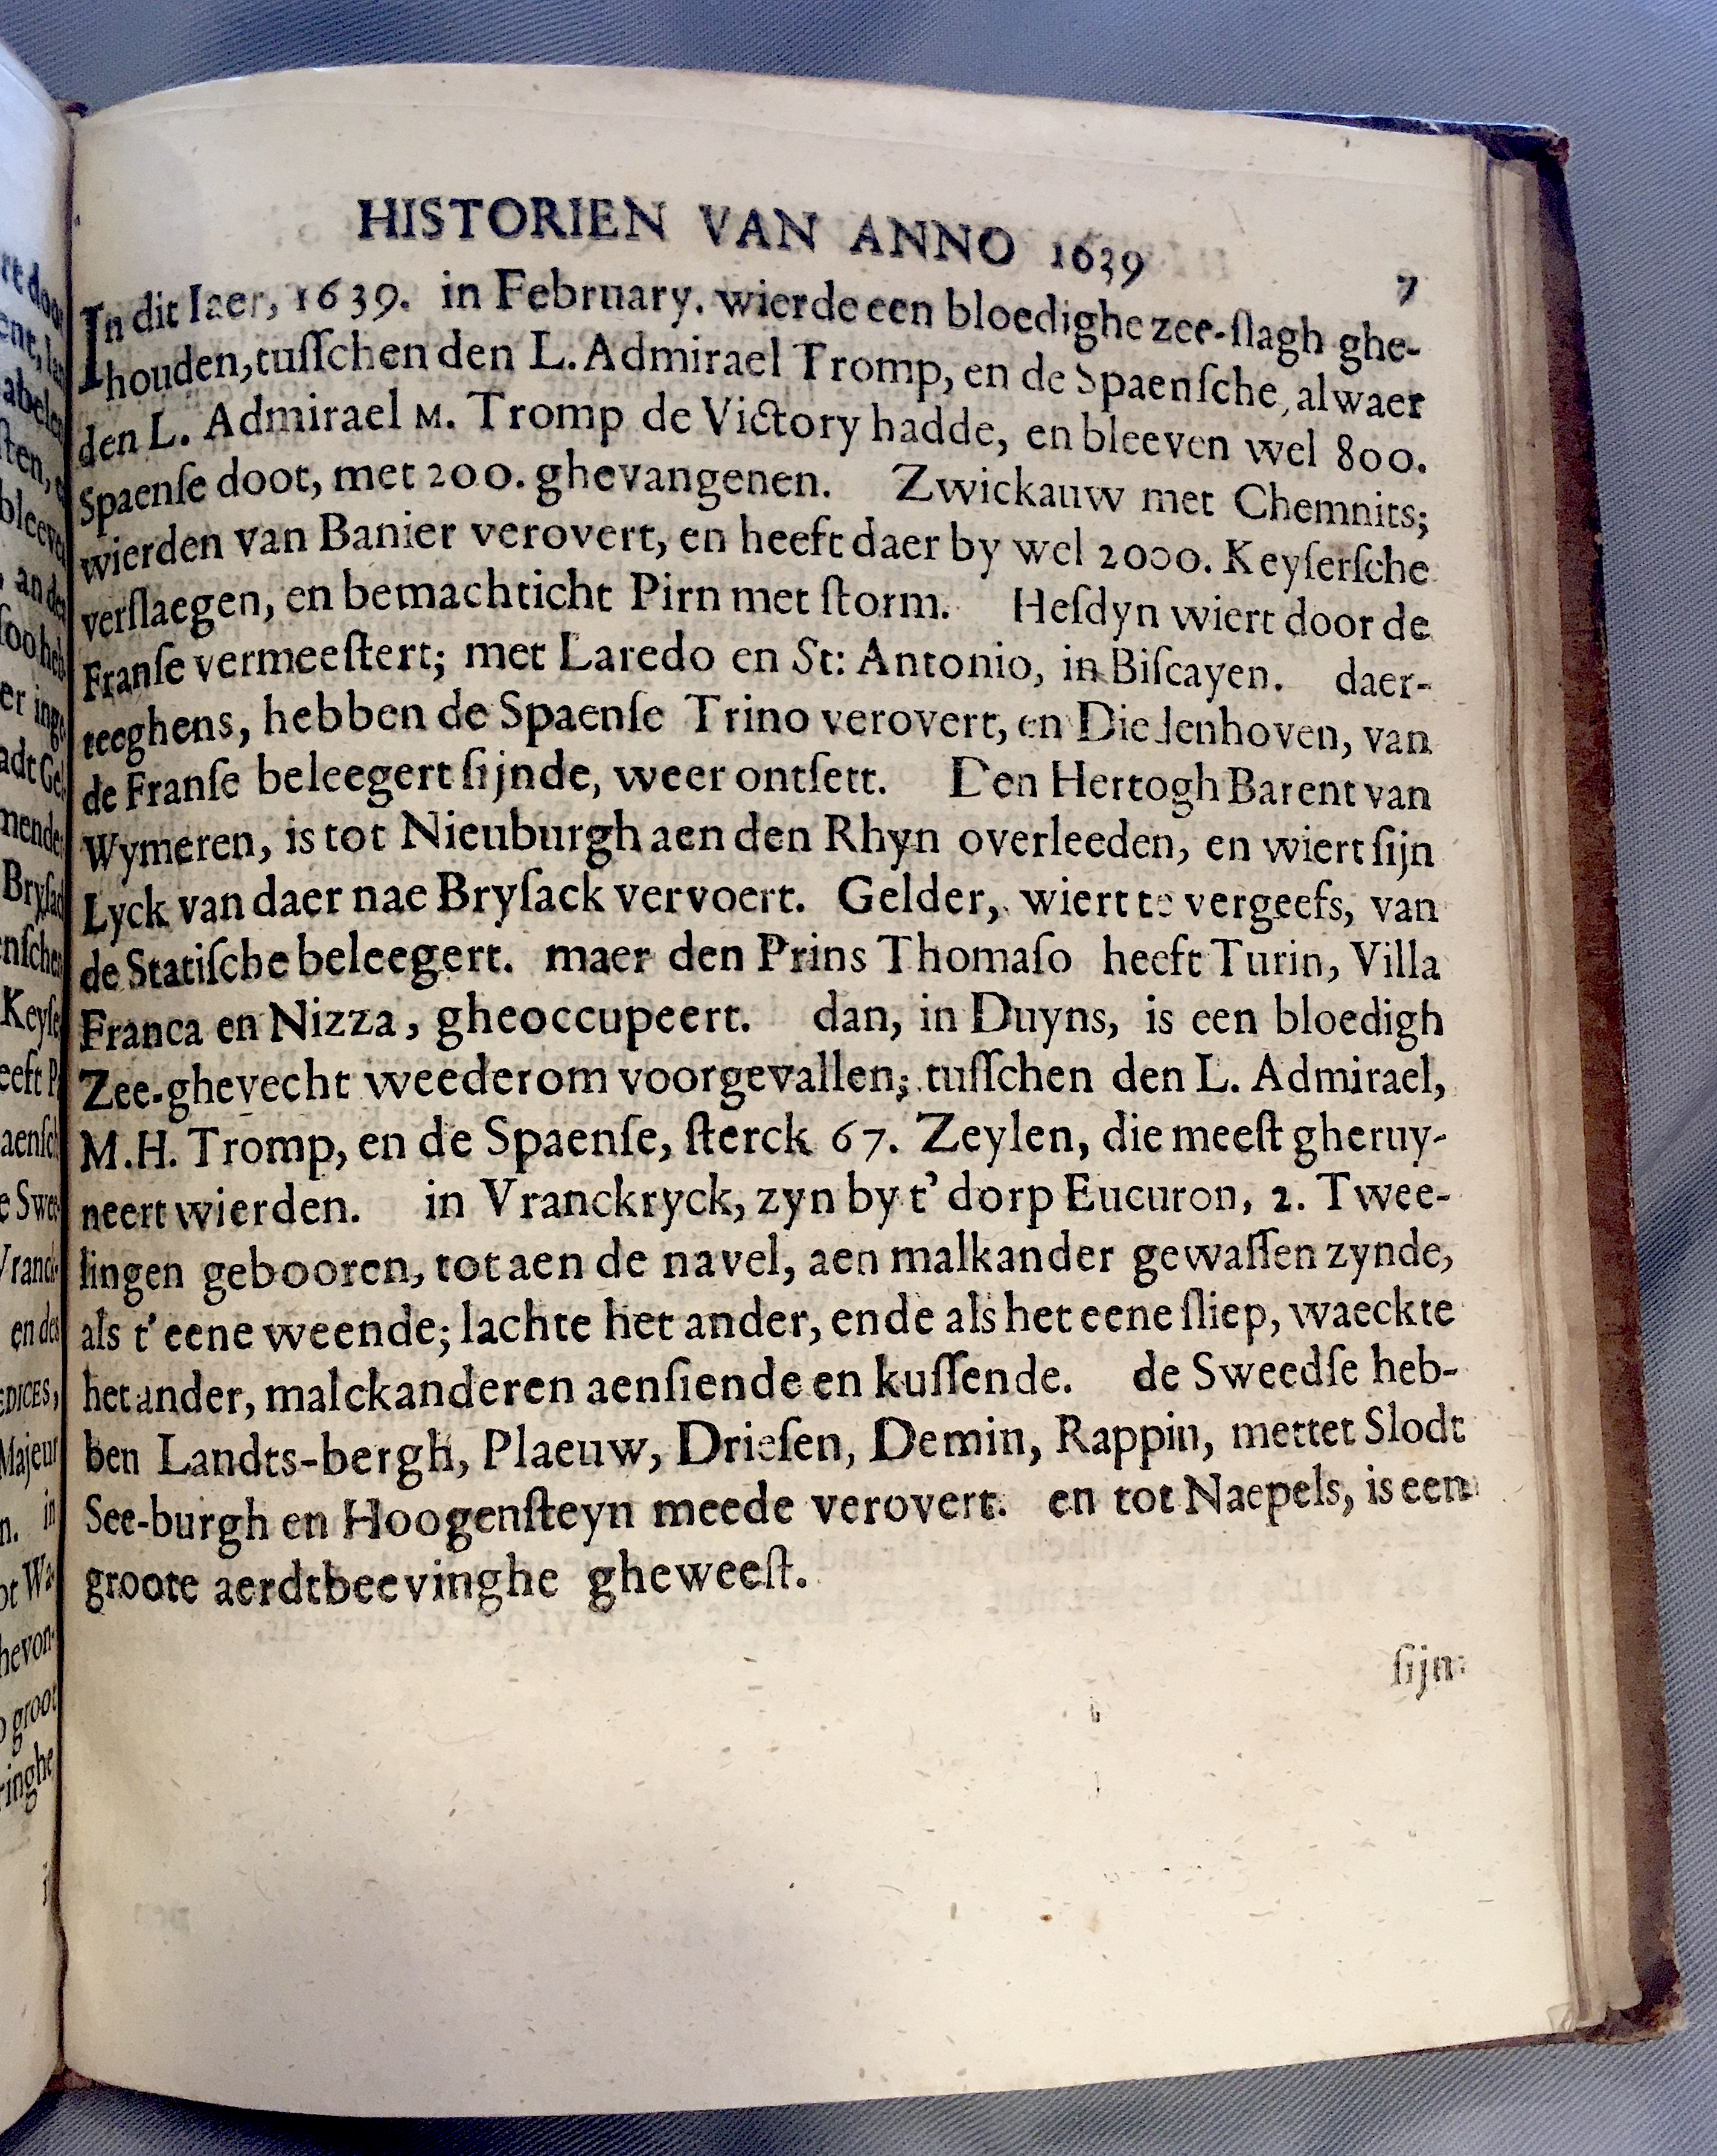 HISTORIEN VAN ANNO 1639
7
In dit Iaer, 1639. in February. wierde een bloedighe zee-ſlagh ghe-
houden, tuſſchen den L. Admirael Tromp, en de Spaenſche, alwaer
den L. Admirael M. Tromp de Victory hadde, en bleeven wel 800.
Spaenſe doot, met 200. ghevangenen. Zwickauw met Chemnits;
wierden van Banier verovert, en heeft daer by wel 2000. Keyſerſche
verſlaegen, en bemachticht Pirn met ſtorm. Heſdyn wiert door de
Franſe vermeeſtert; met Laredo en St: Antonio, in Biſcayen. daer-
teeghens, hebben de Spaenſe Trino verovert, en Diedenhoven, van
de Franſe beleegert ſijnde, weer ontſett. Den Hertogh Barent van
Wymeren, is tot Nieuburgh aen den Rhyn overleeden, en wiert ſijn
Lyck van daer nae Bryſack vervoert. Gelder, wiert te vergeefs, van
de Statiſche beleegert. maer den Prins Thomaſo heeft Turin, Villa
Franca en Nizza, gheoccupeert. dan, in Duyns, is een bloedigh
Zee-ghevecht weederom voorgevallen; tuſſchen den L. Admirael,
M.H. Tromp, en de Spaenſe, ſterck 67. Zeylen, die meeſt gheruy-
neert wierden. in Vranckryck, zyn by t' dorp Eucuron, 2. Twee-
lingen gebooren, tot aen de navel, aen malkander gewaſſen zynde,
als t' eene weende; lachte het ander, ende als het eene ſliep, waeckte
het ander, malckanderen aenſiende en kuſſende. de Sweedſe heb-
ben Landts-bergh, Plaeuw, Drieſen, Demin, Rappin, mettet Slodt
See-burgh en Hoogenſteyn meede verovert. en tot Naepels, is een
groote aerdtbeevinghe gheweeſt.
ſijn